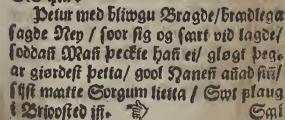 Petur med bliwgu Bragde/ brædlega
sagde Ney / soor sig og sært vid lagde/
soddañ Mañ þeckte hañ ei/ gløgt þeg-
ar giørdest þetta/ gool Haneñ añad siñ/
sijst mætte Sorgum lietta / Sæt plaug
i Brioosted iñ. ☞ Sæl